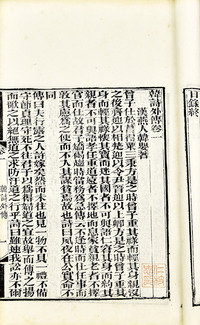 目錄終
韓詩外傳卷一
漢燕人韓嬰著
曾子仕於莒得粟三秉方是之時曾子重其祿而輕其身親沒
之後齊迎以相楚迎以令尹晉迎以上卿方是之時曾子重其
身而輕其祿懷其寶而迷其國者不可與語仁窘其身而約其
親者不可與語孝任重道遠者不擇地而息家貧親老者不擇
官而仕故君子橋褐趨時當務為急傳云不逢時而仕任事而
敦其慮為之使而不入其謀貧焉故也詩曰夙夜在公實命不
同
傳曰夫行露之人許嫁矣然而未往也見一物不具一禮不備
守節貞理守死不往君子以為得婦道之宜故舉而傳之揚
而歌之以絕無道之求防汙道之行乎詩曰雖速我訟亦不爾
卷一
韓詩外傳